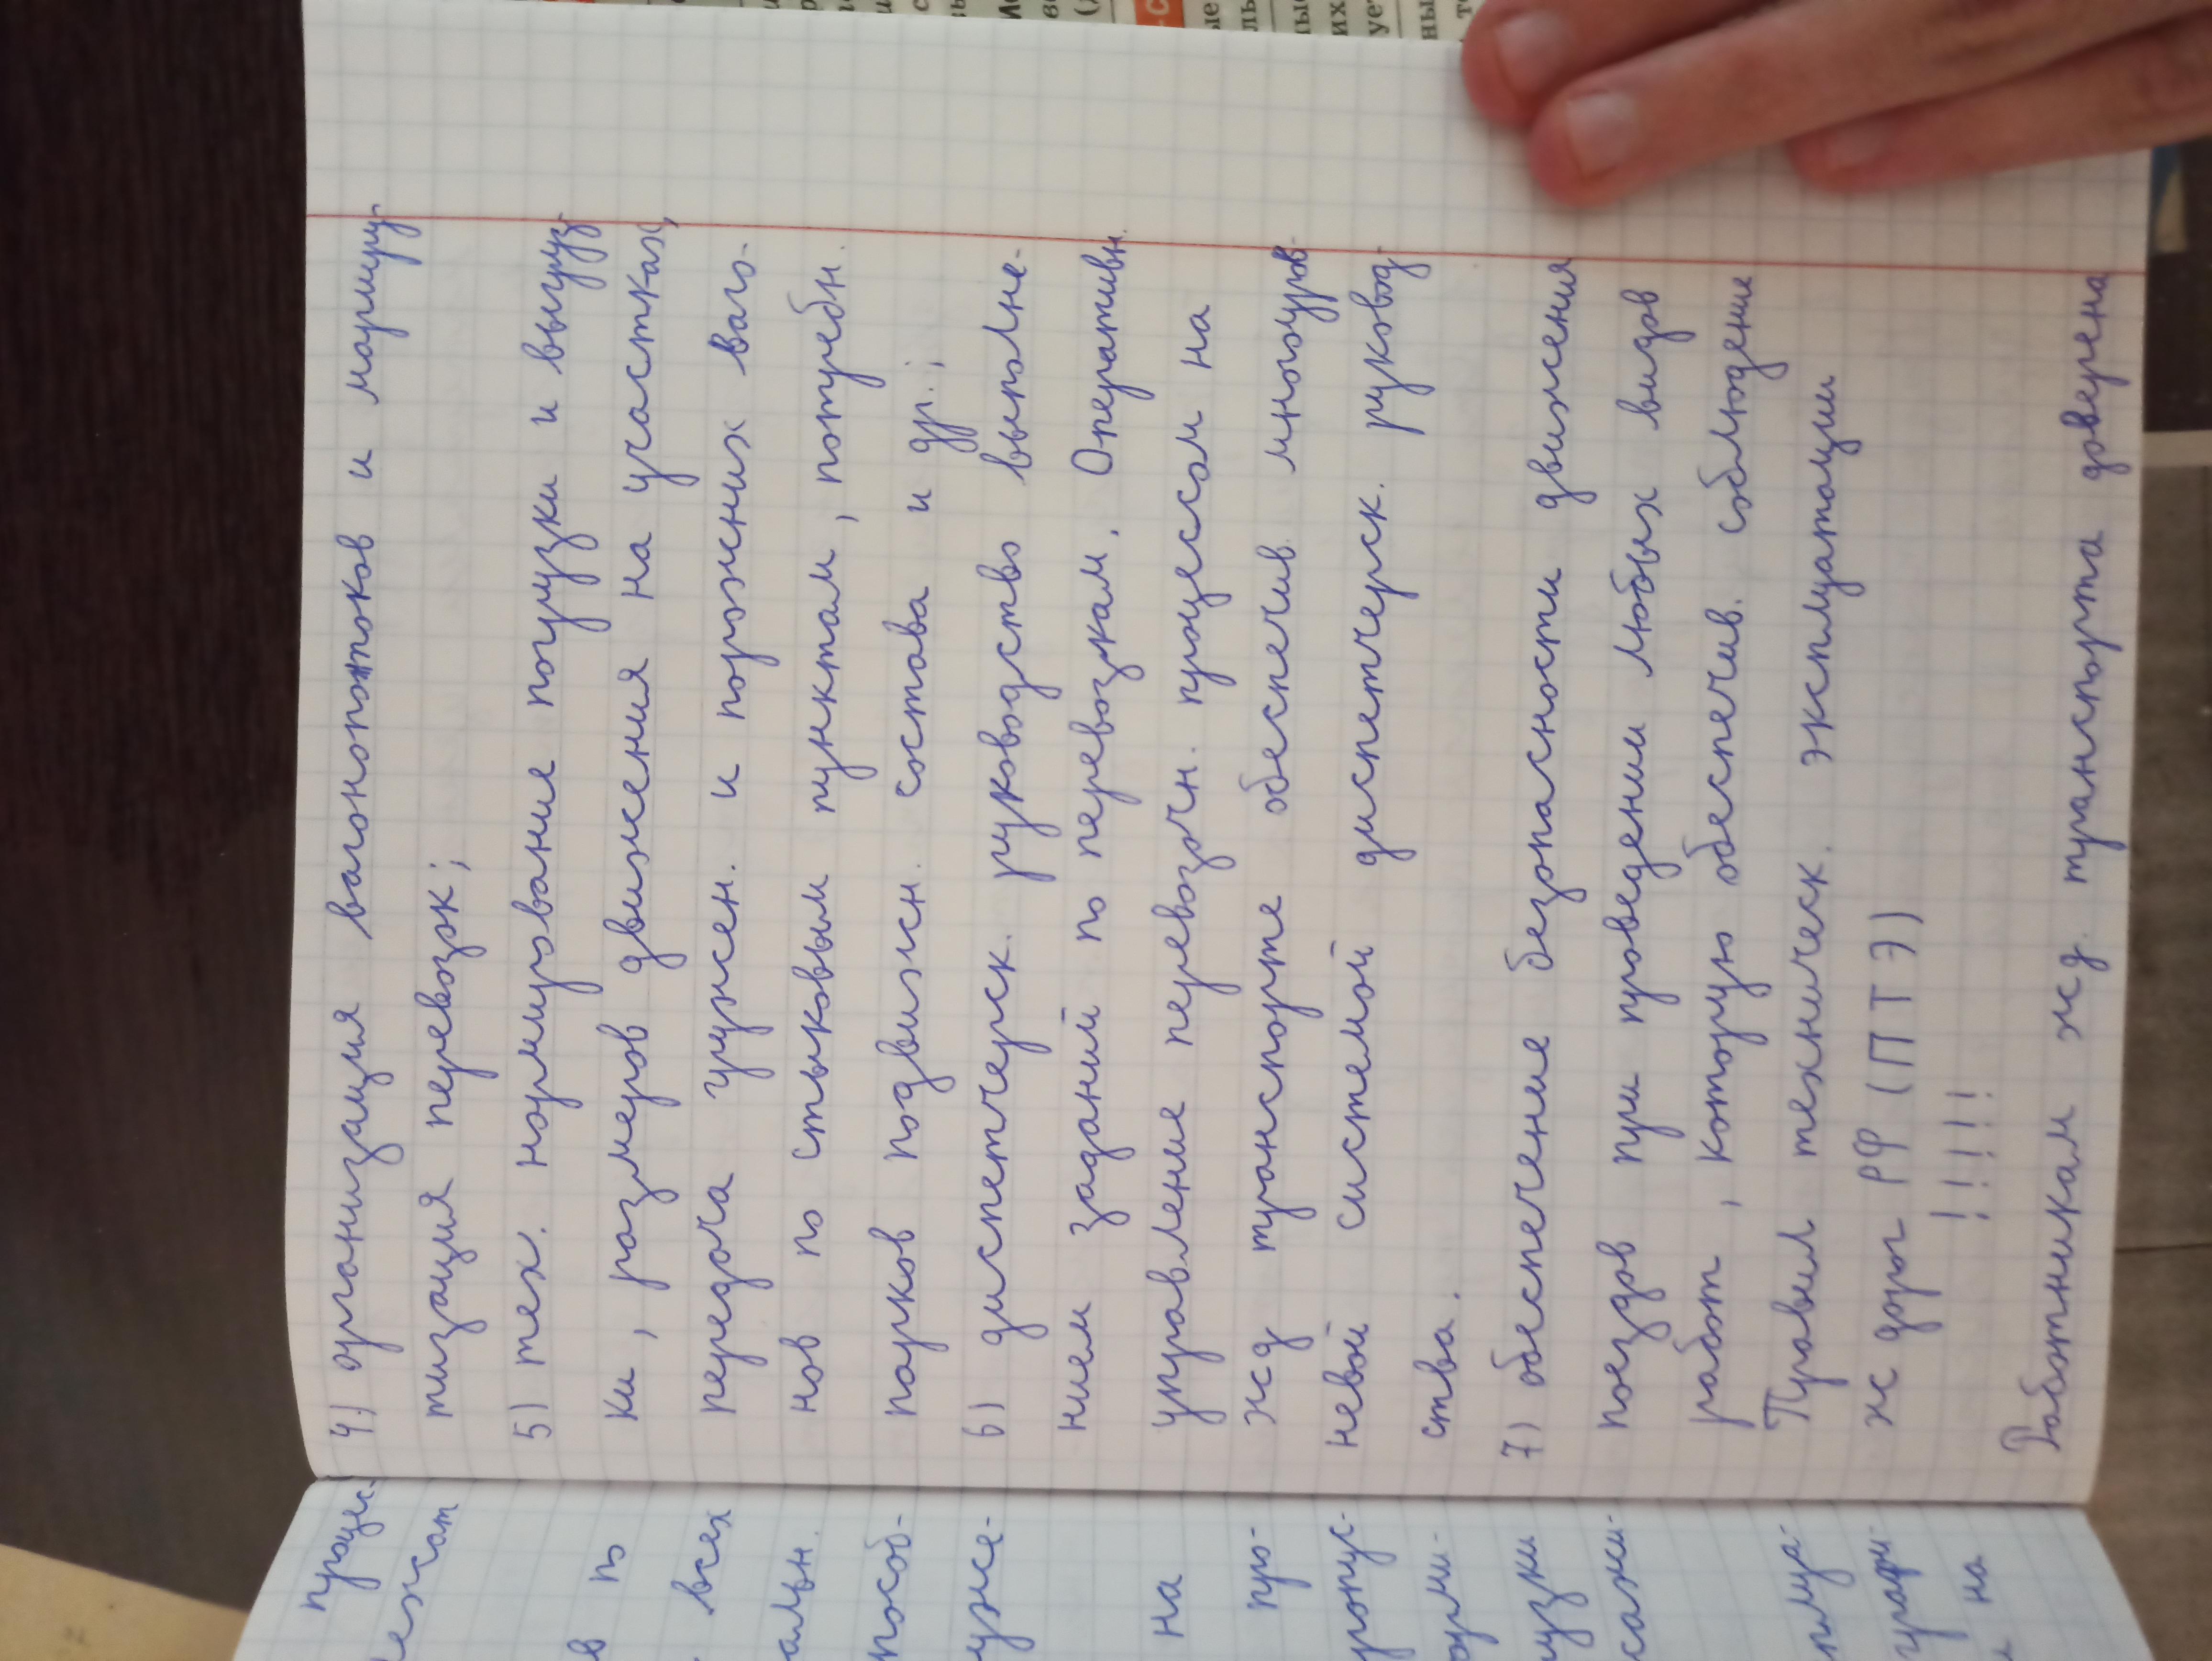 4) организация вагонопотоков и маршру-
тизация перевозок;
5) тех. нормирование погрузки и выгруз-
ки, размеров движения на участках,
передача гружен. и порожних ваго-
нов по стыковым пунктам, потребн.
парков подвижн. состава и др.;
6) диспетчерск. руководство выполне-
нием заданий по перевозкам. Оперативн.
управление перевозочн. процессом на
жд транспорте обеспечив. многоуров-
невой системой диспетчерск. руковод-
ства.
7) обеспечение безопасности движения
поездов при проведении любых видов
работ, которую обеспечив. соблюдение
Правил техническ. эксплуатации
ж дорог РФ (ПТЭ)
! ! ! ! !
Работникам жд. транспорта доверена
процес-
ежат
в по
всех
альн.
пособ-
уже-
на
про-
пропус-
орми-
узки
сажи-
плуа-
графи-
и на